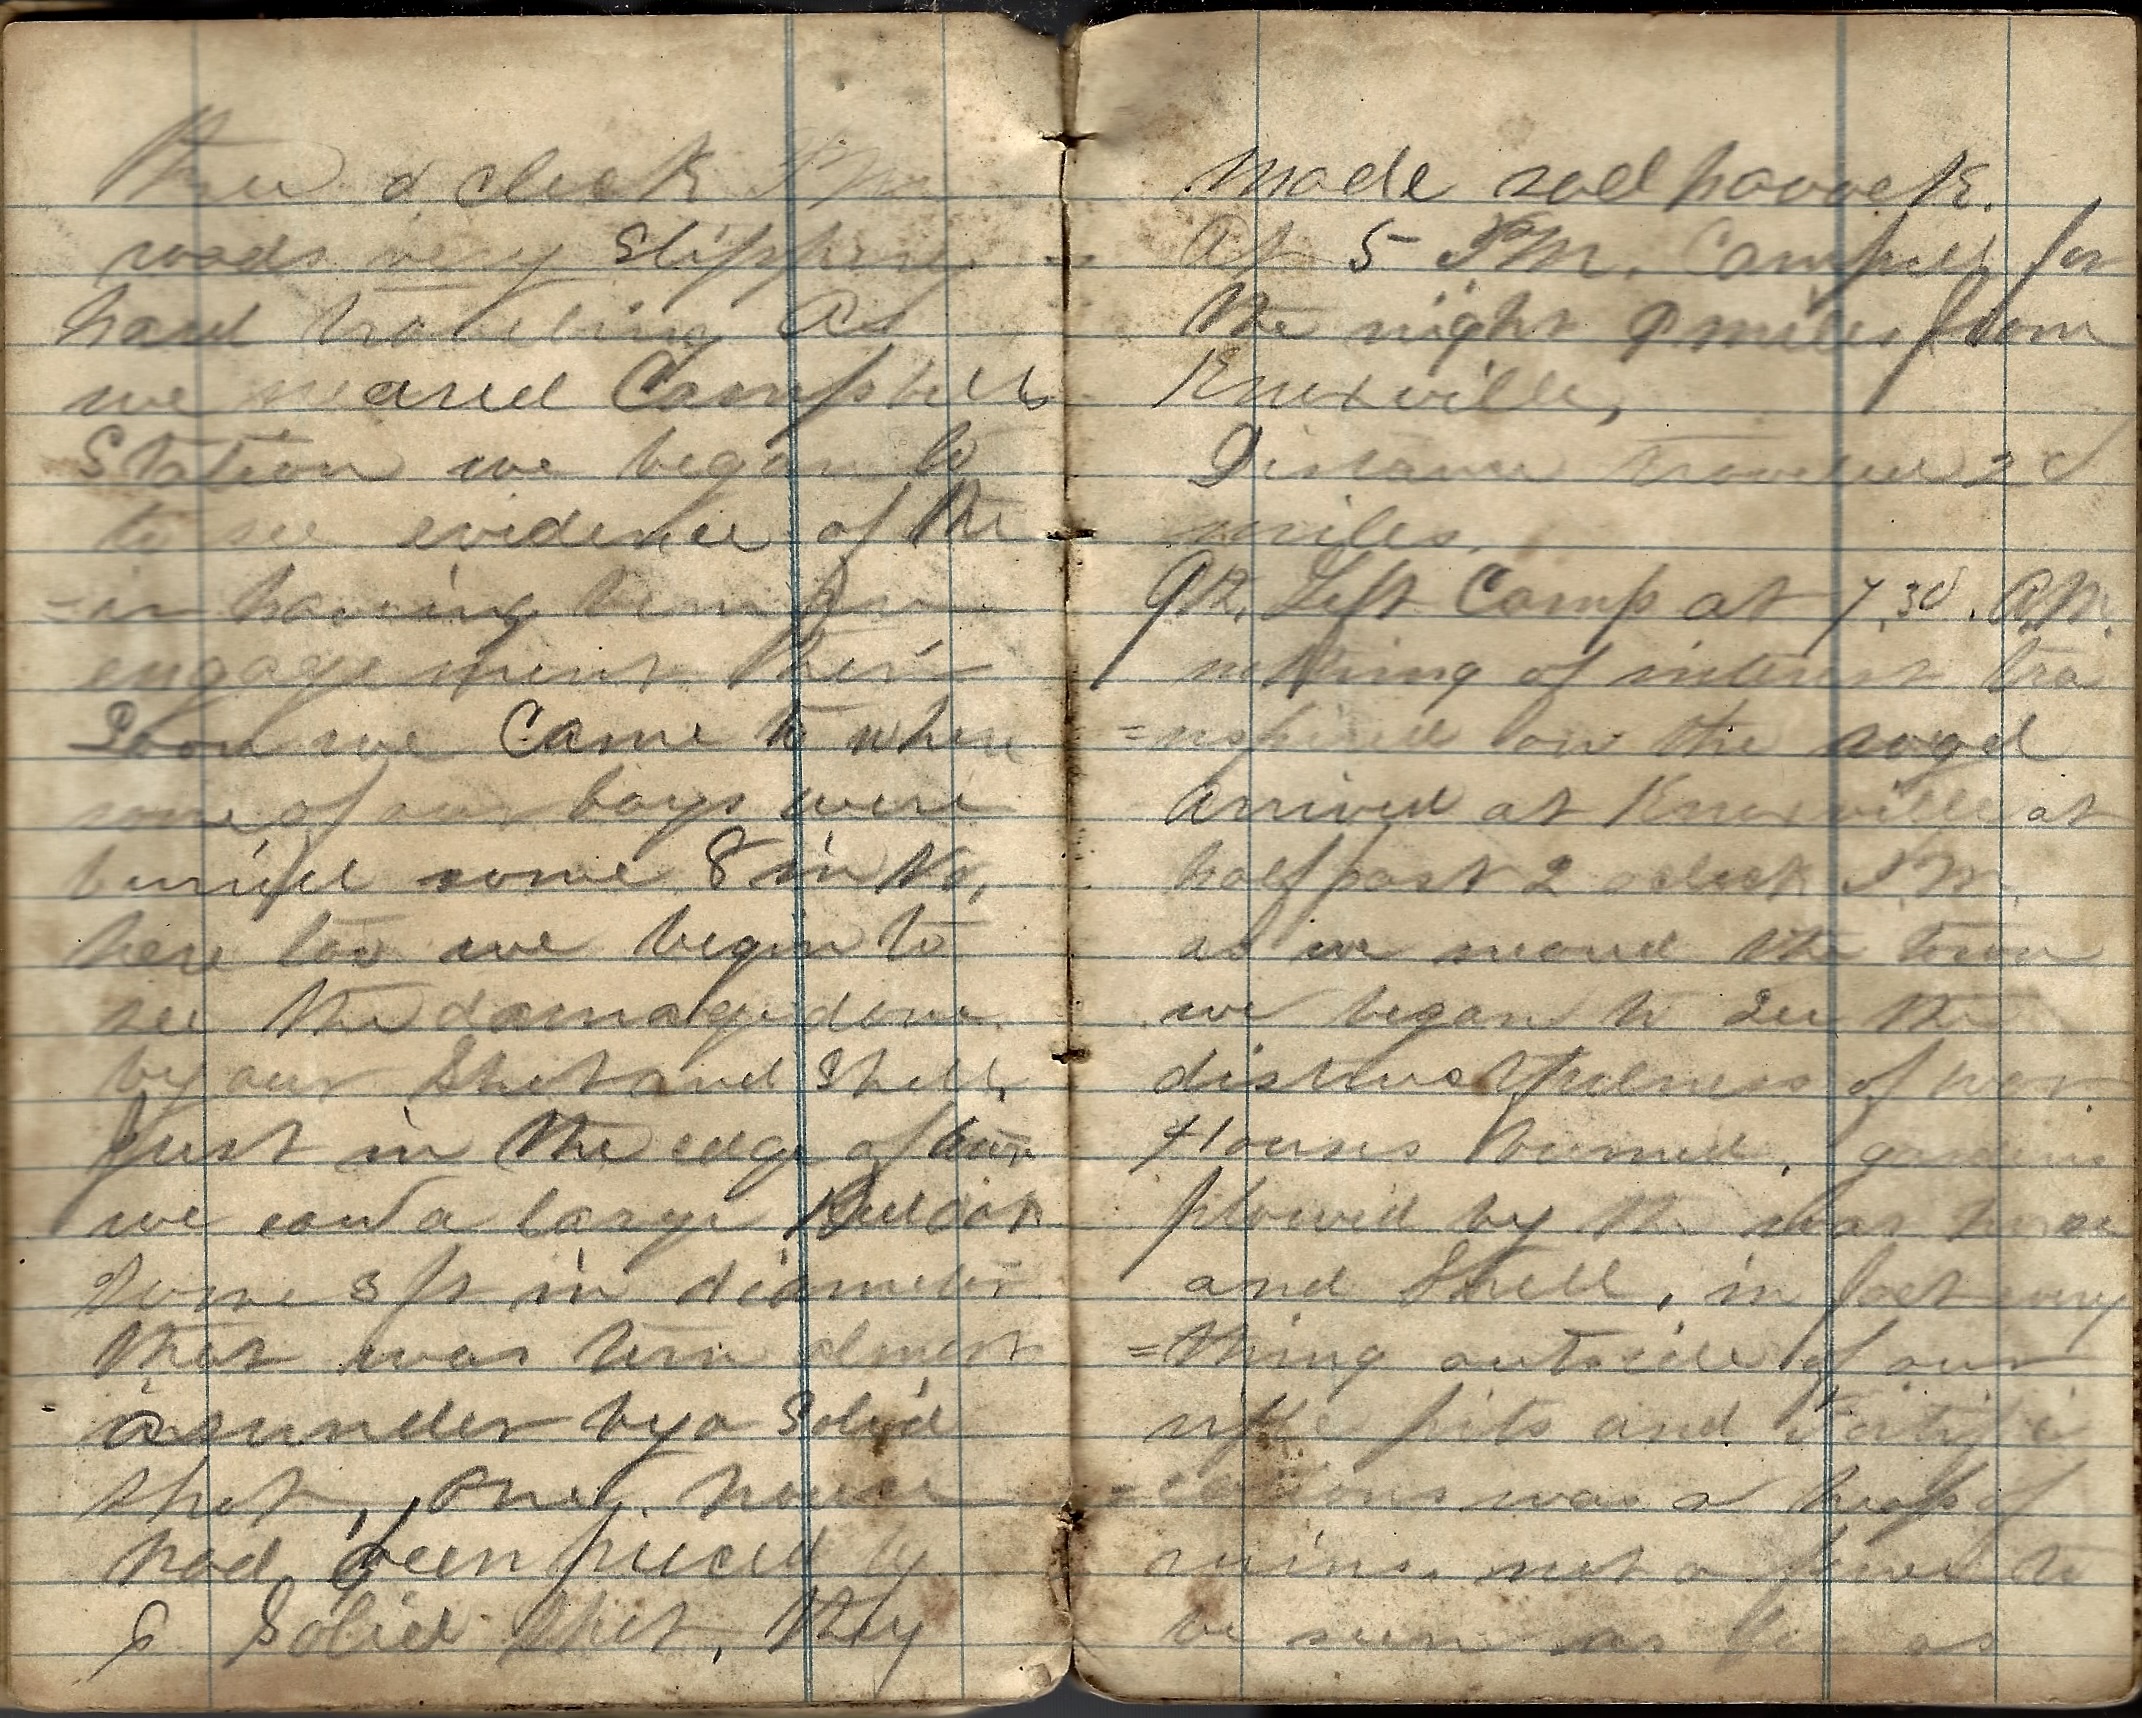 three o clock PM
roads very Slippery
hard traveling As
we neared Campbells
Station we began to
to see evidence of the
=ir having been an
engagement their
Soon we Came to where
some of our boys were
burried some 8 in No,
here too we begin to
see the damage done
by our Shot and Shell,
Just in the edge of town
we a large
some 3 ft in diameter
that was torn almost
asunder by a Solid
shot, One house
had been pierced by
6 Solid Shot, they
made sad havock.
At 5 PM. Camped for
the night 9 miles from
Knoxville,
Distance traveled 20
miles.
9th, Left Camp at 7.30. A.M.
nothing of interest tra
=nspired on the road
Arrived at Knoxville at
half past 2 oclock P.M.
as we neared the town
we began to See the
of war
Houses burned, gardens
plowed by the shot
and Shell, in fact every
=thing outside of our
rifle pits and Fortifi
=cations was a heap of
ruins. not a fence to
be seen as far as